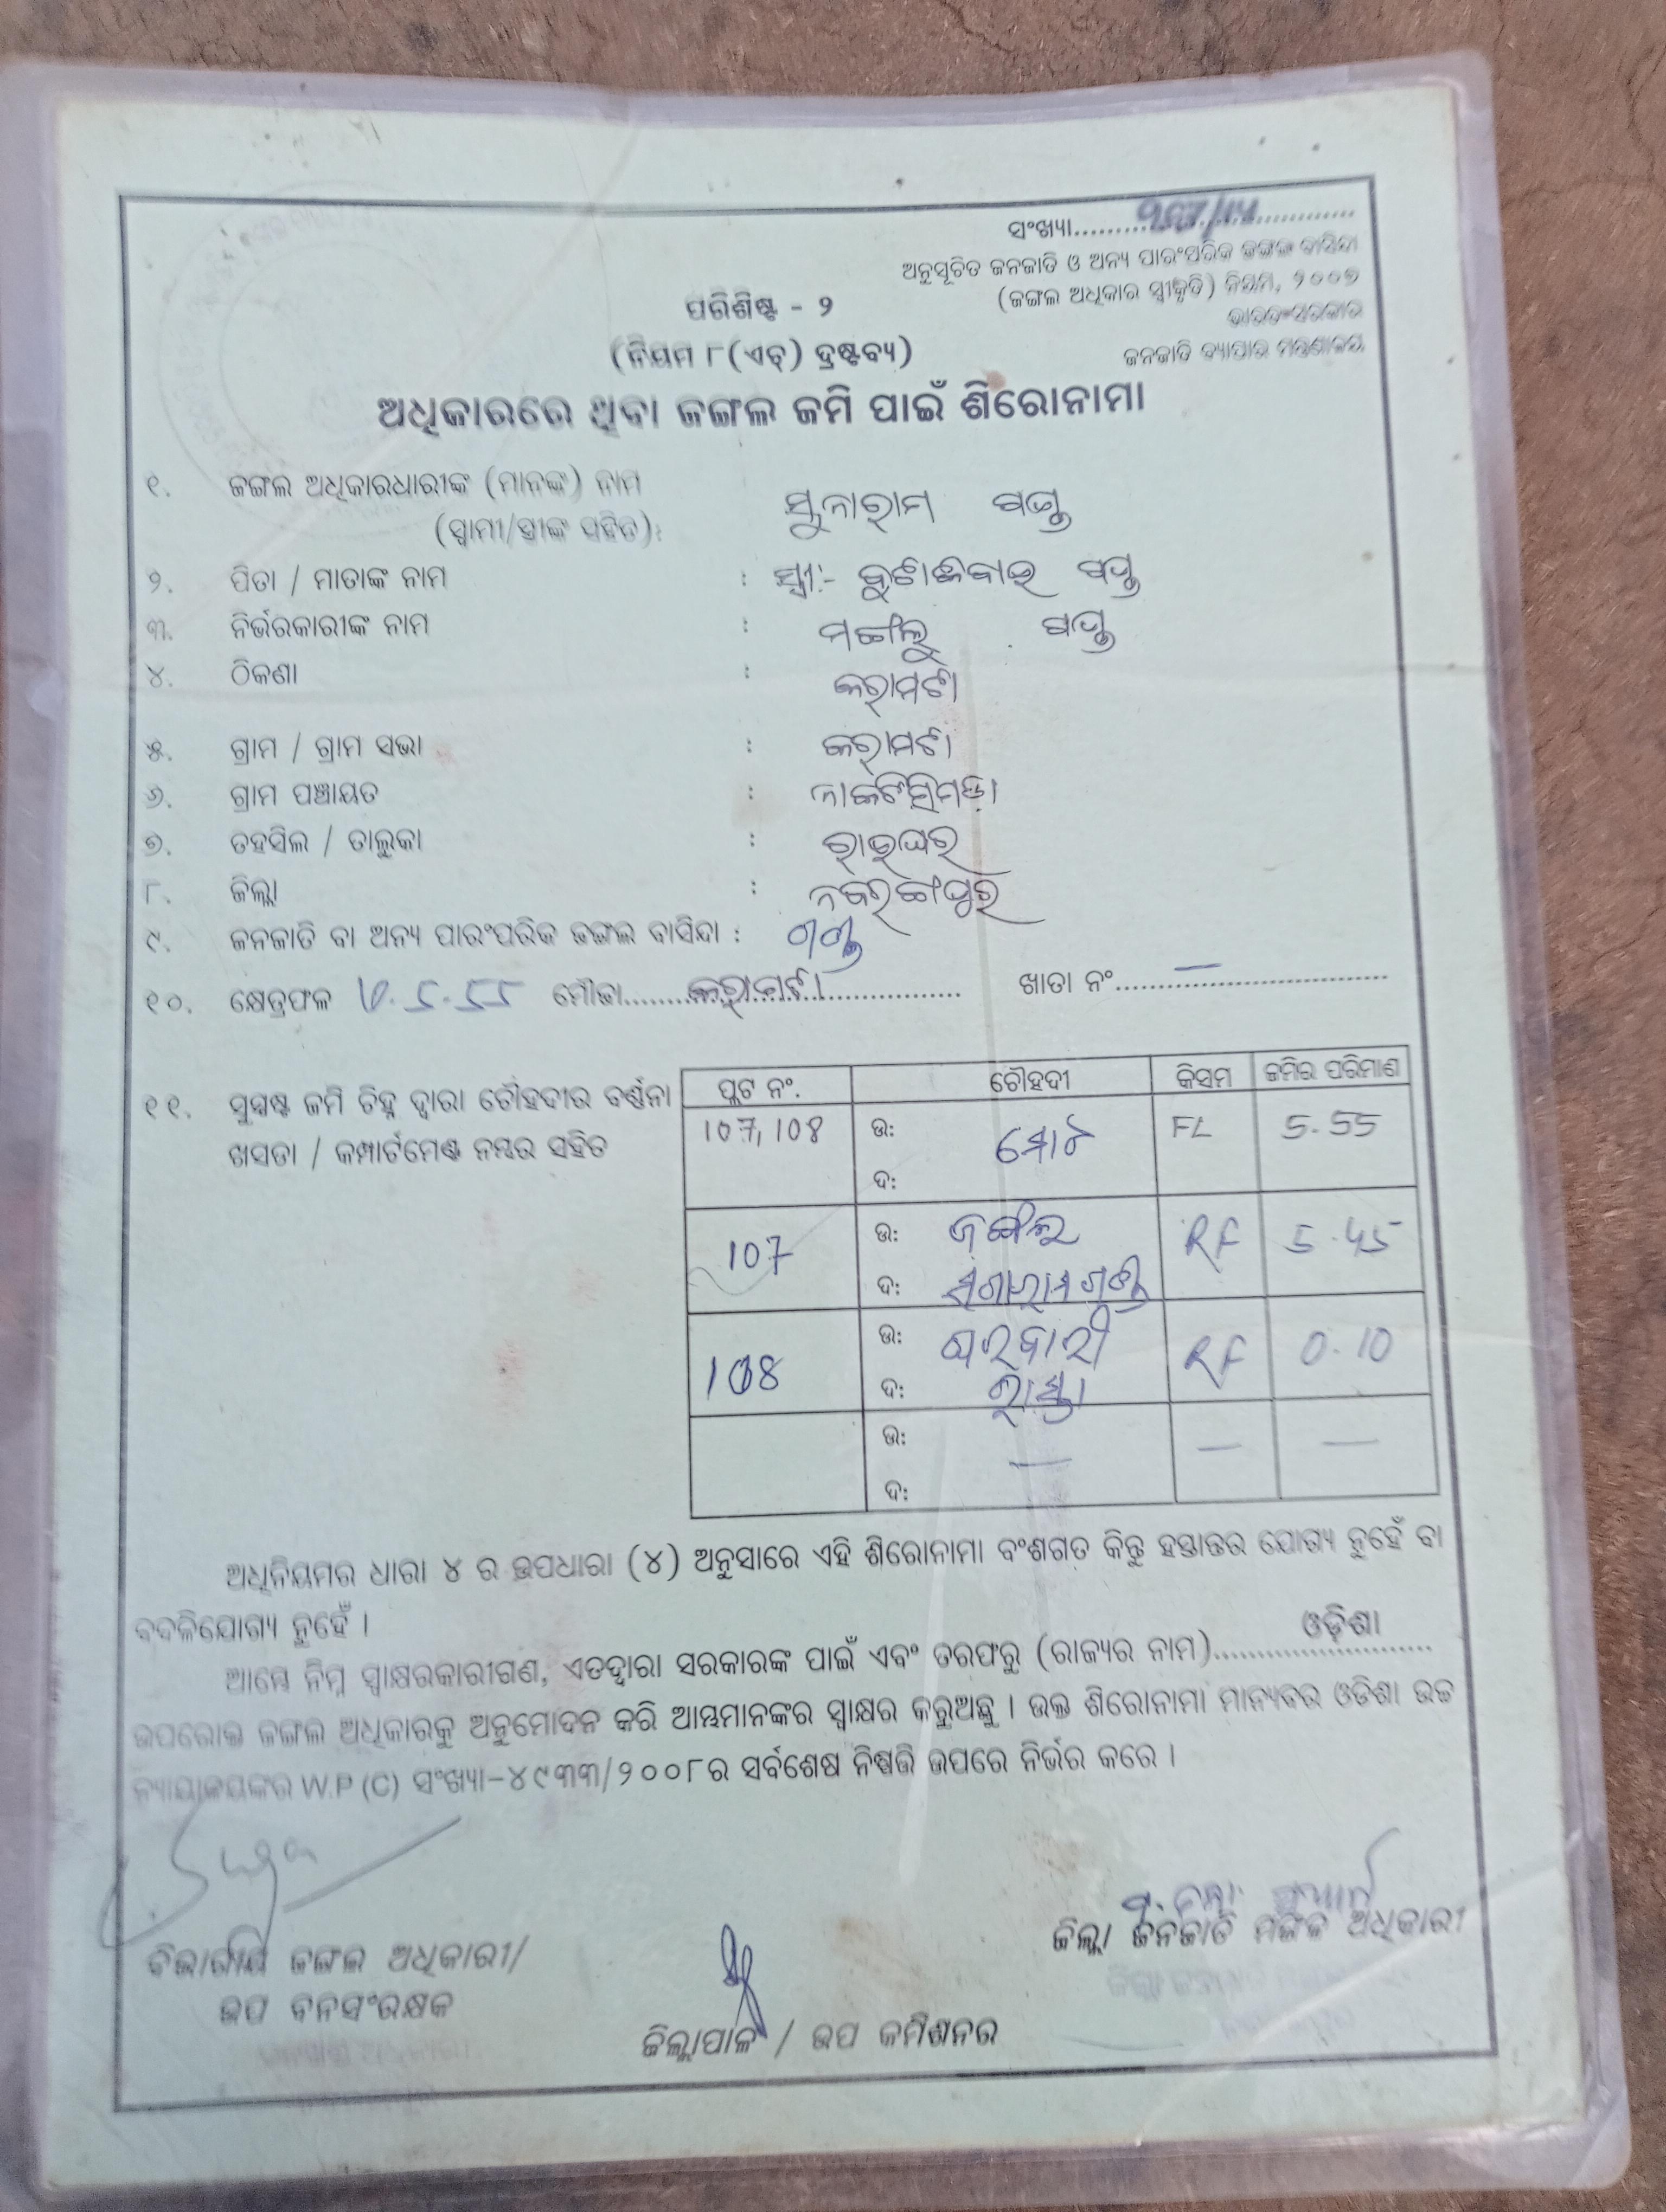 ସଂଖ୍ୟା....................
ଅନୁସୂଚିତ ଜନଜାତି ଓ ଅନ୍ୟ ପାରଂପରିକ ଜଙ୍ଗଲ ବାସିନ୍ଦା
(ଜଙ୍ଗଲ ଅଧିକାର ସ୍ୱୀକୃତି) ନିୟମ, ୨୦୦୭
ଭାରତ ସରକାର
ଜନଜାତି ବ୍ୟାପାର ମନ୍ତ୍ରଣାଳୟ
ପରିଶିଷ୍ଟ - ୨
(ନିୟମ ୮(ଏଚ୍) ଦ୍ରଷ୍ଟବ୍ୟ)
ଅଧିକାରରେ ଥିବା ଜଙ୍ଗଲ ଜମି ପାଇଁ ଶିରୋନାମା
୧. ଜଙ୍ଗଲ ଅଧିକାରଧାରୀଙ୍କ (ମାନଙ୍କ) ନାମ ସୁନାରାମ
(ସ୍ୱାମୀ/ସ୍ତ୍ରୀଙ୍କ ସହିତ):
୨. ପିତା / ମାତାଙ୍କ ନାମ : ସ୍ତ୍ରୀ:-
୩. ନିର୍ଭରକାରୀଙ୍କ ନାମ : ମଙ୍ଗଲୁ
୪. ଠିକଣା : କରାମଟା
୫. ଗ୍ରାମ / ଗ୍ରାମ ସଭା : କରାମଟା
୬. ଗ୍ରାମ ପଞ୍ଚାୟତ : ନାକଟିସିମଡ଼ା
୭. ତହସିଲ / ତାଲୁକା : ରାଇଘର
୮. ଜିଲ୍ଲା : ନବରଙ୍ଗପୁର
୯. ଜନଜାତି ବା ଅନ୍ୟ ପାରଂପରିକ ଜଙ୍ଗଲ ବାସିନ୍ଦା : ଗଣ୍ଡ
୧୦. କ୍ଷେତ୍ରଫଳ ମୌଜା....କରାମଟା.... ଖାତା ନଂ....—....
୧୧. ସୁସ୍ପଷ୍ଟ ଜମି ଚିହ୍ନ ଦ୍ୱାରା ଚୌହଦୀର ବର୍ଣ୍ଣନା
ଖସଡା / କମ୍ପାର୍ଟମେଣ୍ଟ ନମ୍ବର ସହିତ
ପ୍ଲଟ ନଂ. ଚୌହଦୀ କିସମ ଜମିର ପରିମାଣ
107, 108 ଉ: ମୋଟ FL 5.55
ଦ:
107 ଉ: ଜଙ୍ଗଲ RF 5.45
ଦ:
108 ଉ: ଘରବାରୀ RF 0.10
ଦ: ରାସ୍ତା
ଉ: — — —
ଦ:
ଅଧିନିୟମର ଧାରା ୪ ର ଉପଧାରା (୪) ଅନୁସାରେ ଏହି ଶିରୋନାମା ବଂଶଗତ କିନ୍ତୁ ହସ୍ତାନ୍ତର ଯୋଗ୍ୟ ନୁହେଁ ବା
ବଦଳିଯୋଗ୍ୟ ନୁହେଁ ।
ଆମ୍ଭେ ନିମ୍ନ ସ୍ୱାକ୍ଷରକାରୀଗଣ, ଏତଦ୍ୱାରା ସରକାରଙ୍କ ପାଇଁ ଏବଂ ତରଫରୁ (ରାଜ୍ୟର ନାମ)....ଓଡ଼ିଶା....
ଉପରୋକ୍ତ ଜଙ୍ଗଲ ଅଧିକାରକୁ ଅନୁମୋଦନ କରି ଆମ୍ଭମାନଙ୍କର ସ୍ୱାକ୍ଷର କରୁଅଛୁ । ଉକ୍ତ ଶିରୋନାମା ମାନ୍ୟବର ଓଡିଶା ଉଚ୍ଚ
ନ୍ୟାୟାଳୟଙ୍କର W.P (C) ସଂଖ୍ୟା-୪୯୩୩/୨୦୦୮ର ସର୍ବଶେଷ ନିଷ୍ପତ୍ତି ଉପରେ ନିର୍ଭର କରେ ।
ବିଭାଗୀୟ ଜଙ୍ଗଲ ଅଧିକାରୀ/
ଉପ ବନସଂରକ୍ଷକ
ଜିଲ୍ଲାପାଳ / ଉପ କମିଶନର
ଜିଲ୍ଲା ଜନଜାତି ମଙ୍ଗଳ ଅଧିକାରୀ